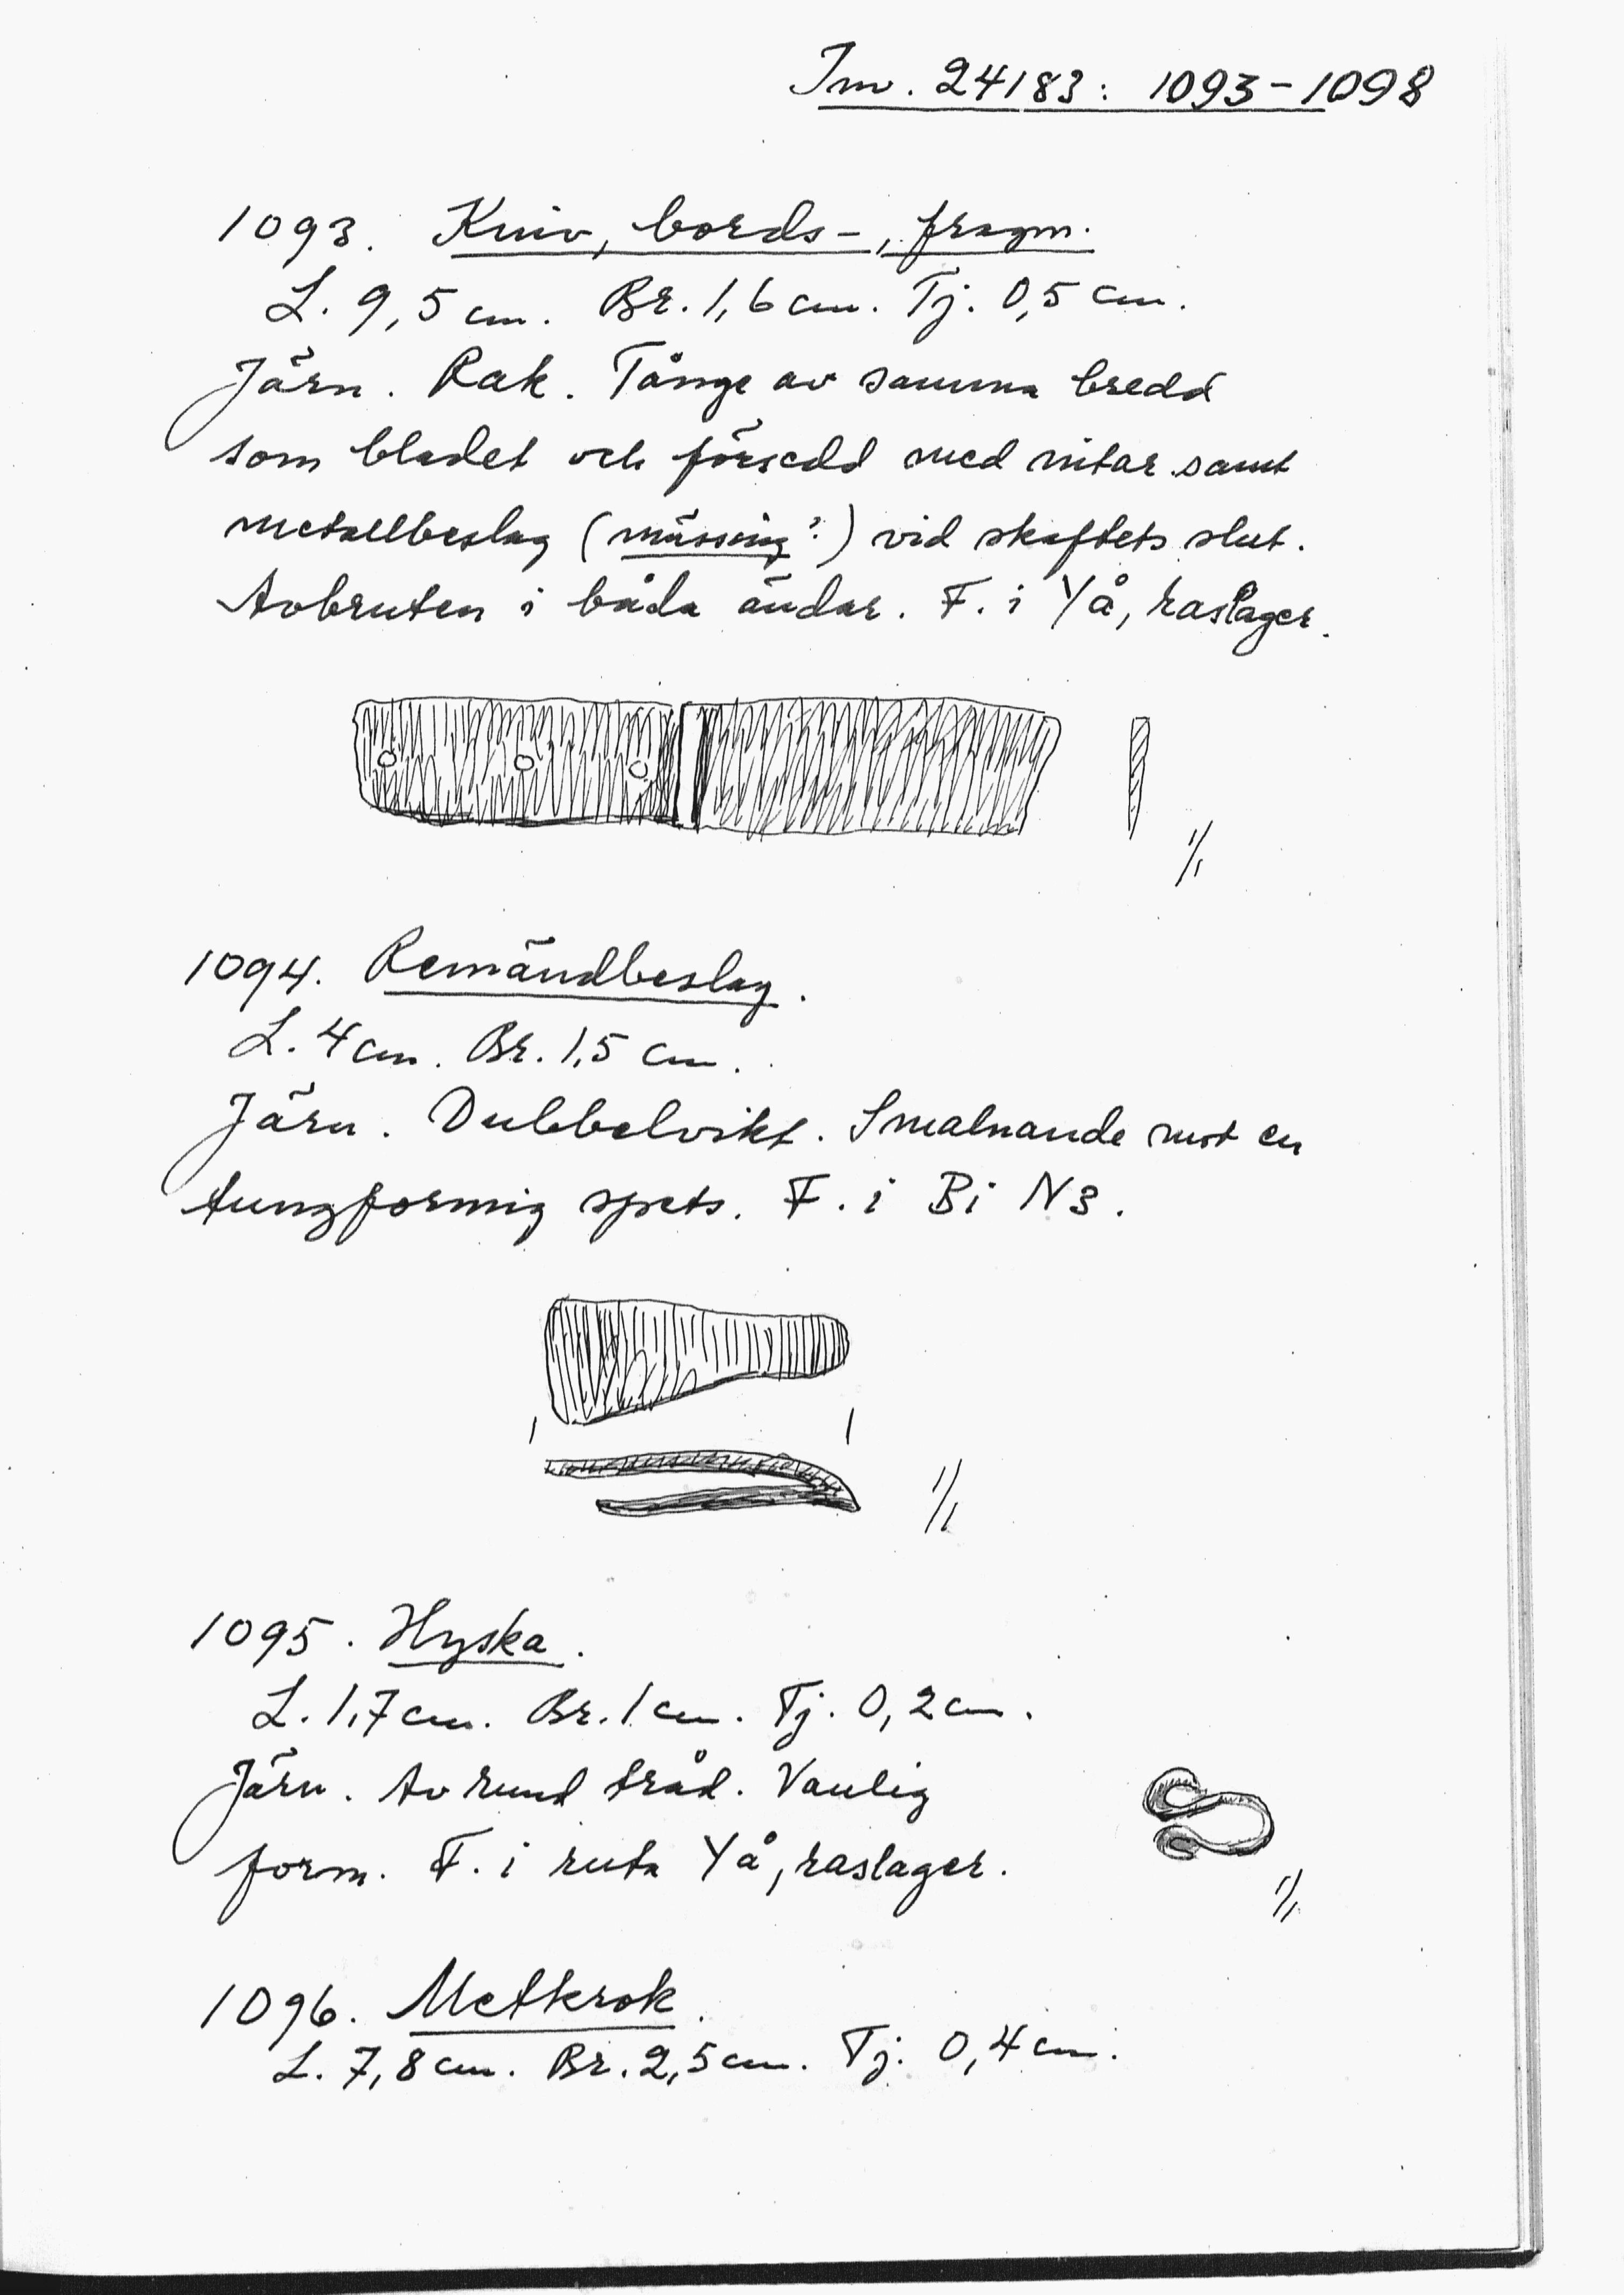 Inv. 24183: 1093-1098
1093. Kniv, bords-, fragm.
L. 9,5 cm. Br. 1,6 cm. Tj. 0,5 cm.
Järn. Rak. Tånge av samma bredd
som bladet och försedd med nitar samt
metallbeslag (mässing?) vid skaftets slut.
Avbruten i båda ändar. F. i Yå, raslager.
1/1
1094. Remändbeslag.
L. 4 cm. Br. 1,5 cm.
Järn. Dubbelvikt. Smalnande mot en
tungformig spets. F. i Bi N3.
1/1
1095. Hyska.
L. 1,7 cm. Br. 1 cm. Tj. 0,2 cm.
Järn. Av rund tråd. Vanlig
form. F. i ruta Yå, raslager.
1/1
1096. Metkrok.
L. 7,8 cm. Br. 2,5 cm. Tj. 0,4 cm.